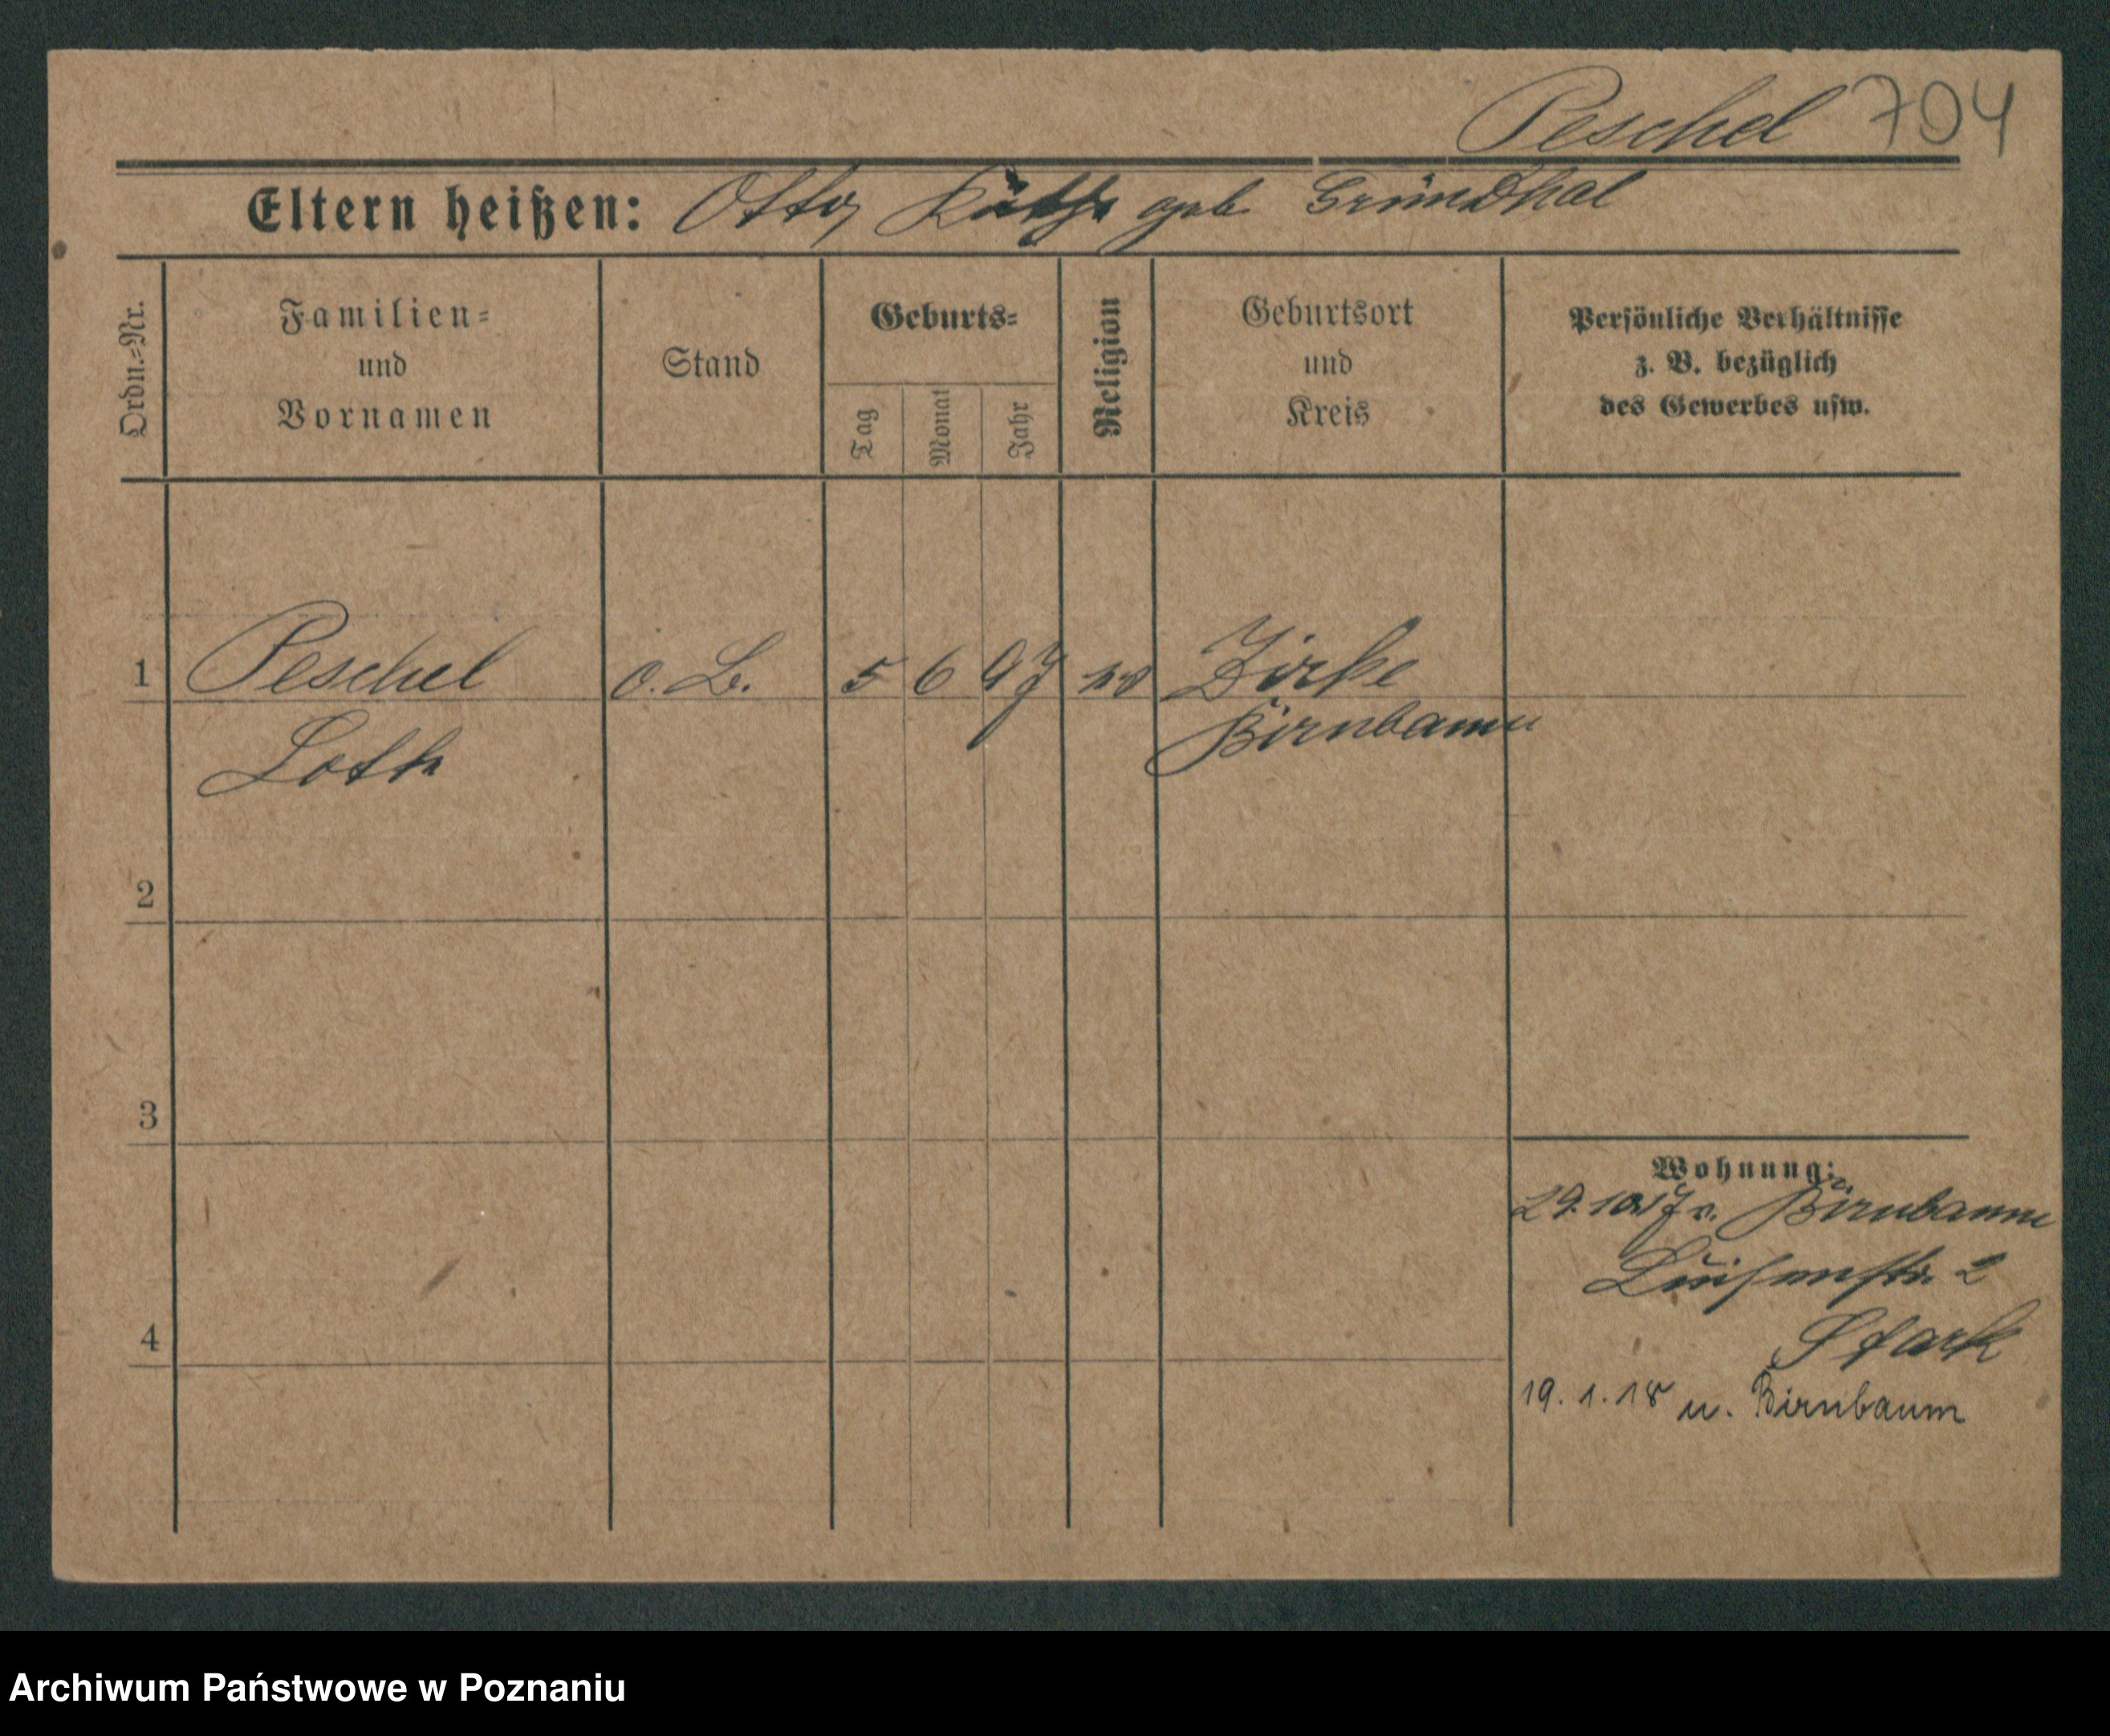 Peschel 704
Eltern heißen: Otto, Käthe geb. Gründhal
Ordn.=Nr.
Familien=
und
Vornamen
Stand
Geburts=
Tag
Monat
Jahr
Religion
Geburtsort
und
Kreis
Persönliche Verhältnisse
z. B. bezüglich
des Gewerbes usw.
1 Peschel o. B. 5 6 97 Zirke
Loth Birnbaum
2
3
4
Wohnung:
29.10.17 v. Birnbaum
Luisenstr. 2
Stark
19.1.18 n. Birnbaum
Archiwum Państwowe w Poznaniu